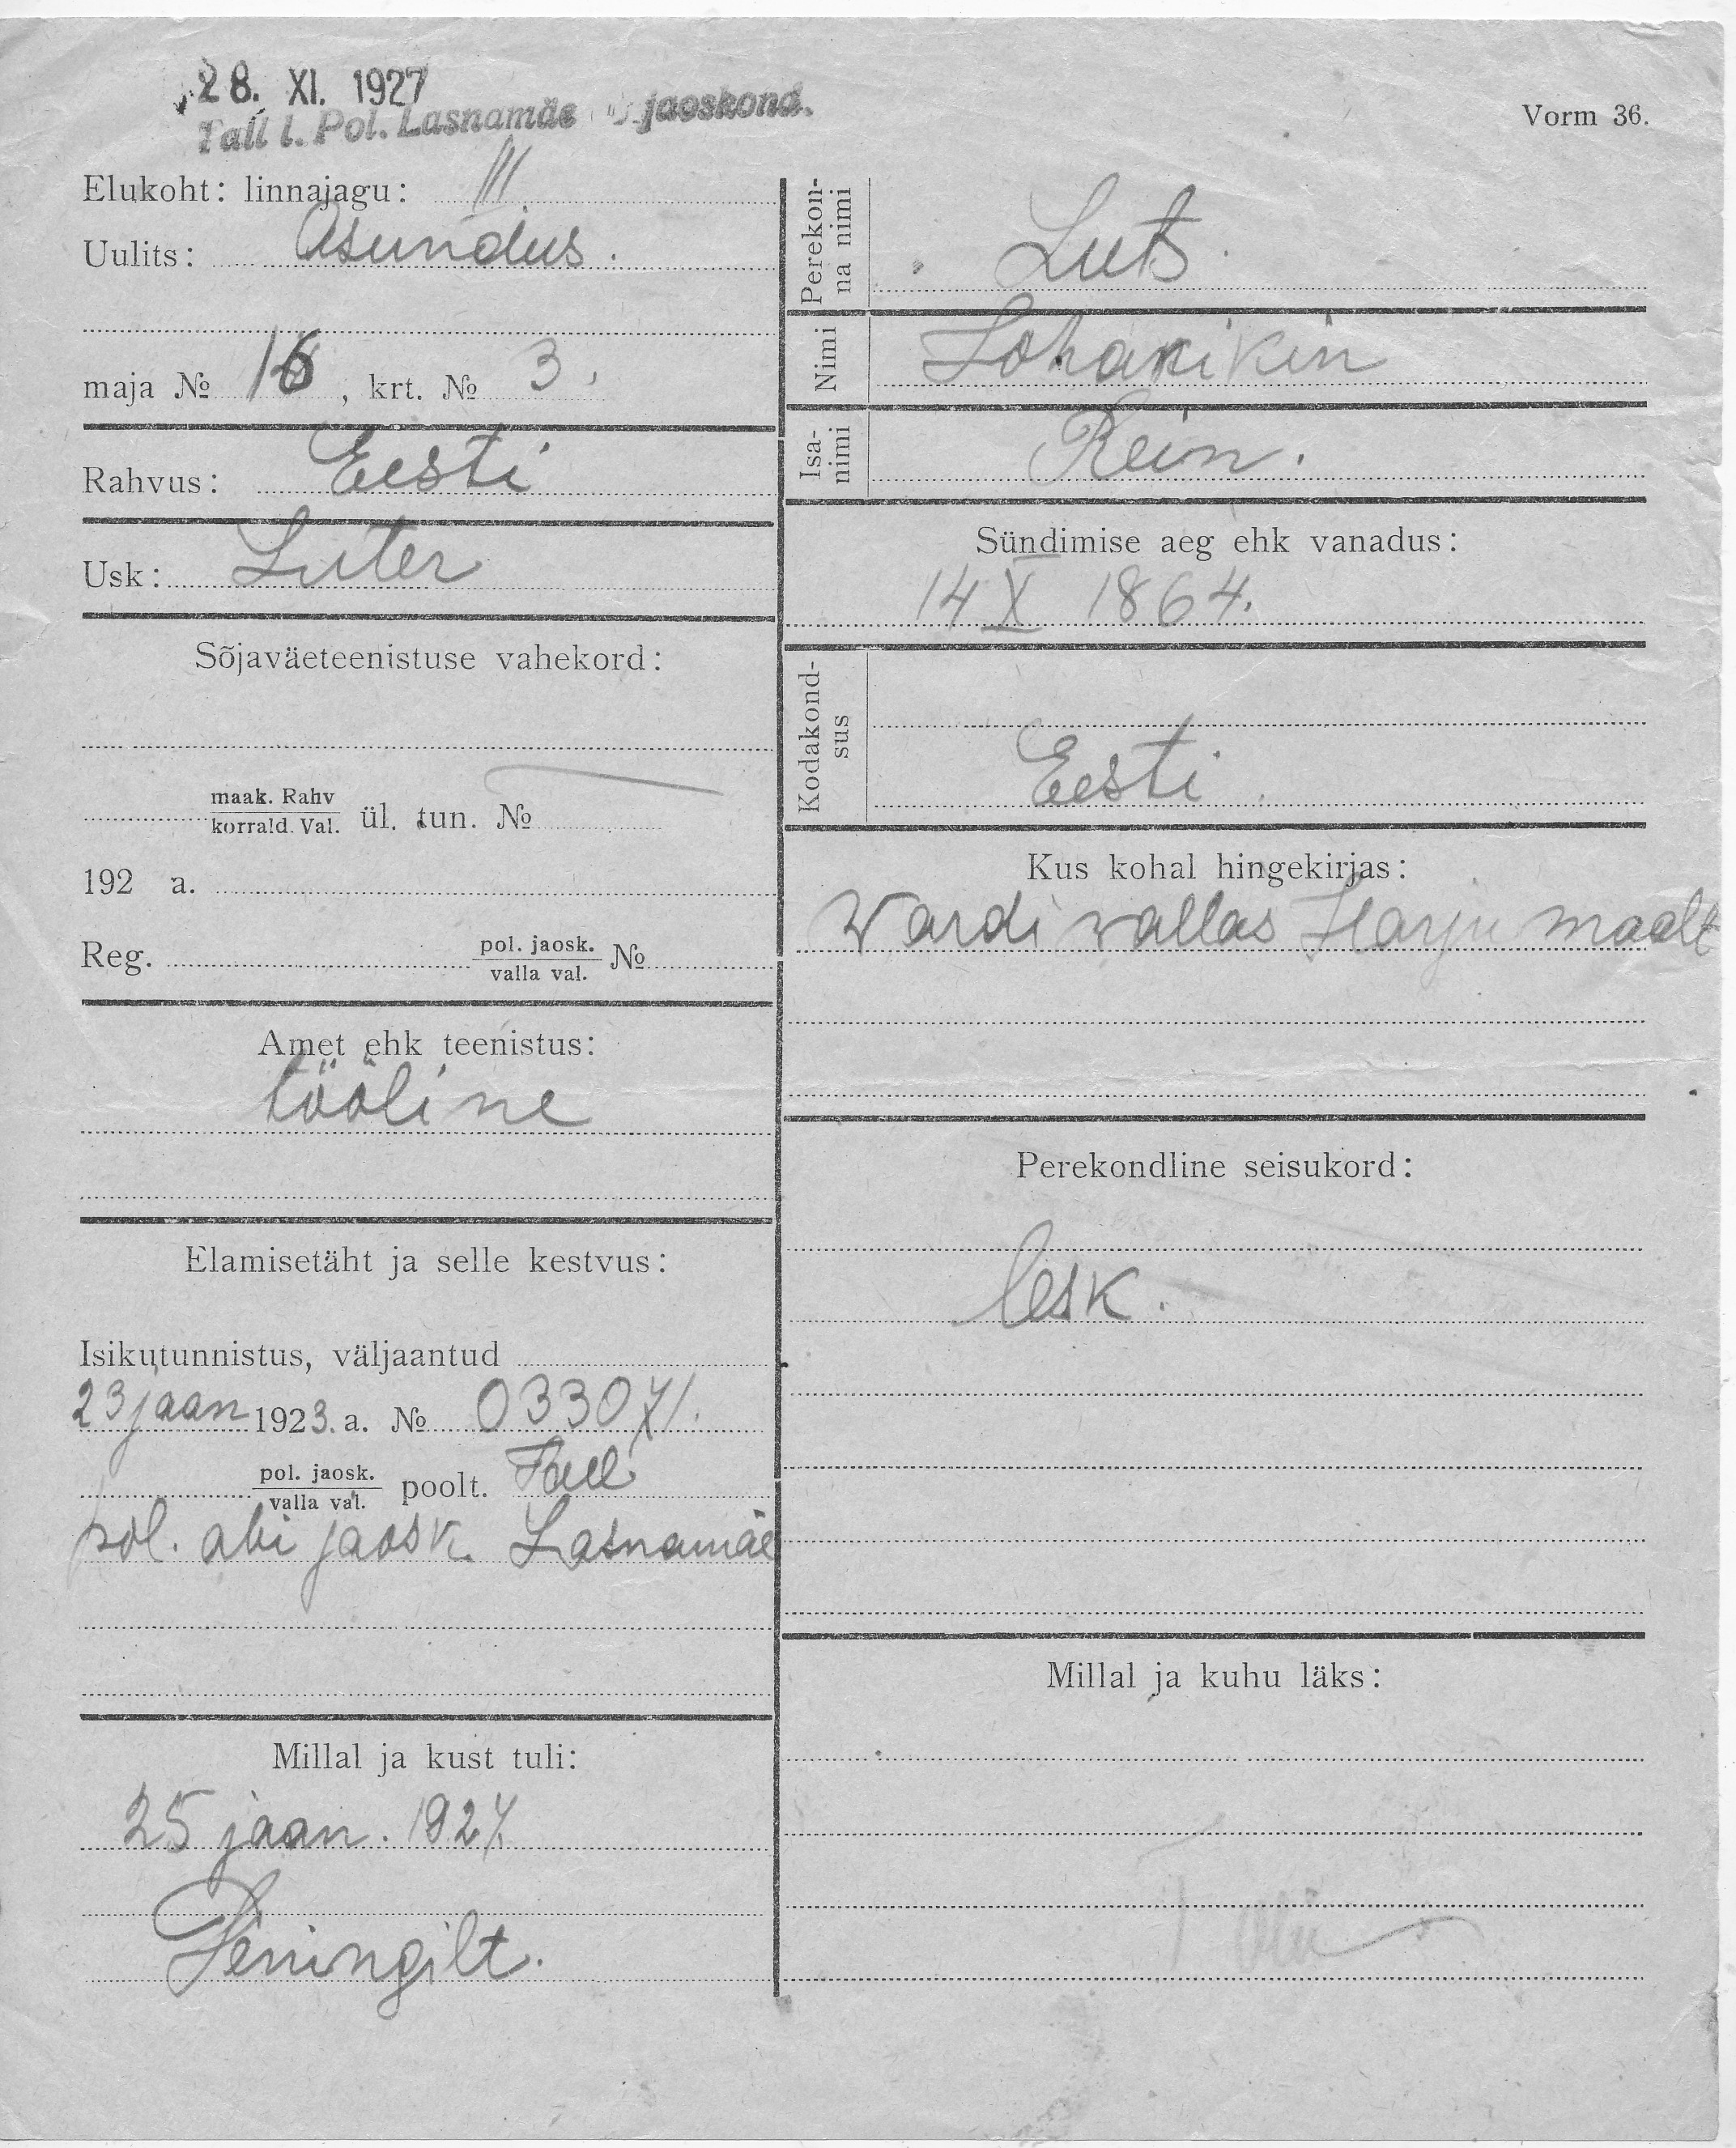 28. XI. 1927
Tall l. Pol. Lasnamäe jaoskond.
Vorm 36.
Elukoht: linnajagu: III
Uulits: Asundus.
maja № 16, krt. № 3.
Rahvus: Eesti
Usk: Luter
Sõjaväeteenistuse vahekord:
maak. Rahv
korrald. Val. ül. tun. №
192 a.
Reg. pol. jaosk.
valla val. №
Amet ehk teenistus:
tööline
Elamisetäht ja selle kestvus:
Isikutunnistus, väljaantud
23 jaan 1923. a. № 033071.
pol. jaosk.
valla val. poolt. Tall
pol. abi jaosk. Lasnamäe
Millal ja kust tuli:
25 jaan. 1927
Peningilt.
Perekonna nimi
Luts
Nimi
Isanimi
Rein.
Sündimise aeg ehk vanadus:
14 X 1864.
Kodakondsus
Eesti
Kus kohal hingekirjas:
Wardi vallas Harju maalt
Perekondline seisukord:
lesk.
Millal ja kuhu läks: